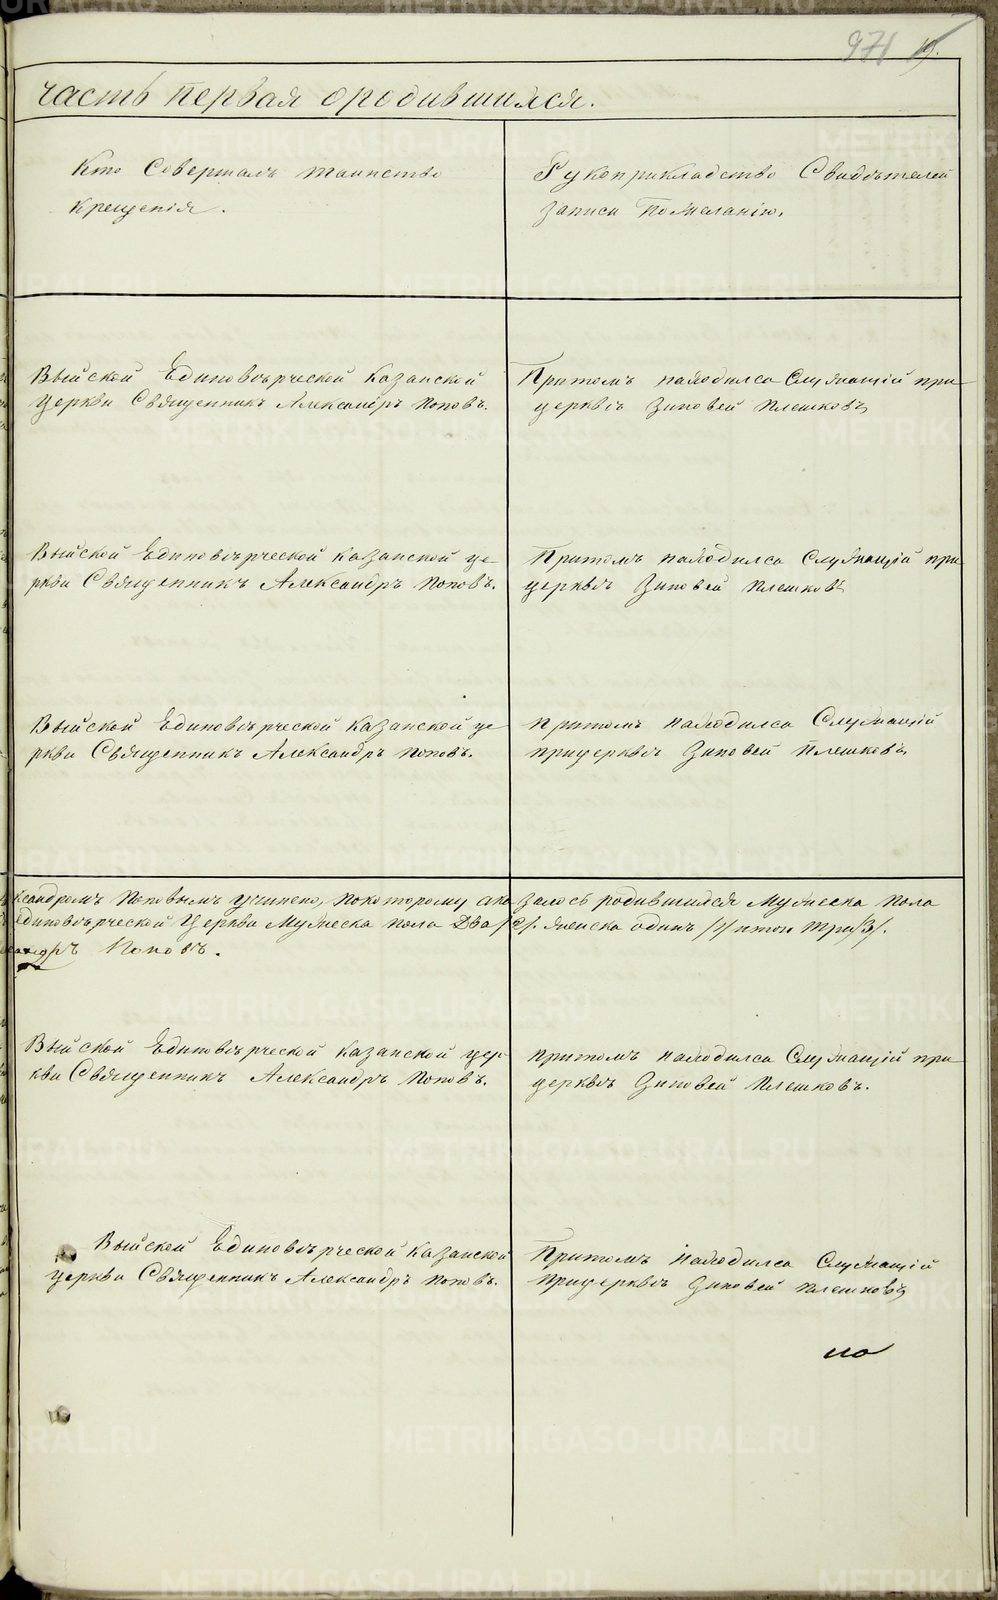 971 19.
Часть первая ородившихся.
Кто Совершалъ таинство
Крещенія.
Рукоприкладство Свидѣтелей
записи По желанію.
Выйской Единовѣрческой Казанской
Церкви Священникъ Александръ Поповъ.
Притомъ находился Служащій при
церквѣ Зиновей Плешковъ
Выйской Единовѣрческой Казанской це-
ркви Священникъ Александръ Поповъ.
Притомъ находился Служащій при
церквѣ Зиновей Плешковъ
Выйской Единовѣрческой Казанской це-
ркви Священникъ Александръ Поповъ.
притомъ находился Служащій
прицерквѣ Зиновей Плешковъ
ксандромъ Поповымъ учинено, покоторому ока залось родившихся Мужеска пола
Единовѣрческой Церкви Мужеска пола Два /2/. Женска одинъ /1/ итого три /3/.
сандръ Поповъ.
Выйской Единовѣрческой Казанской цер-
кви Священникъ Александръ Поповъ.
притомъ находился Служащій при
церквѣ Зиновей Плешковъ.
Выйской Единовѣрческой Казанской
Церкви Священникъ Александръ Поповъ.
Притомъ находился Служащій
прицерквѣ Зиновей Плешковъ
но
METRIKI.GASO-URAL.RU